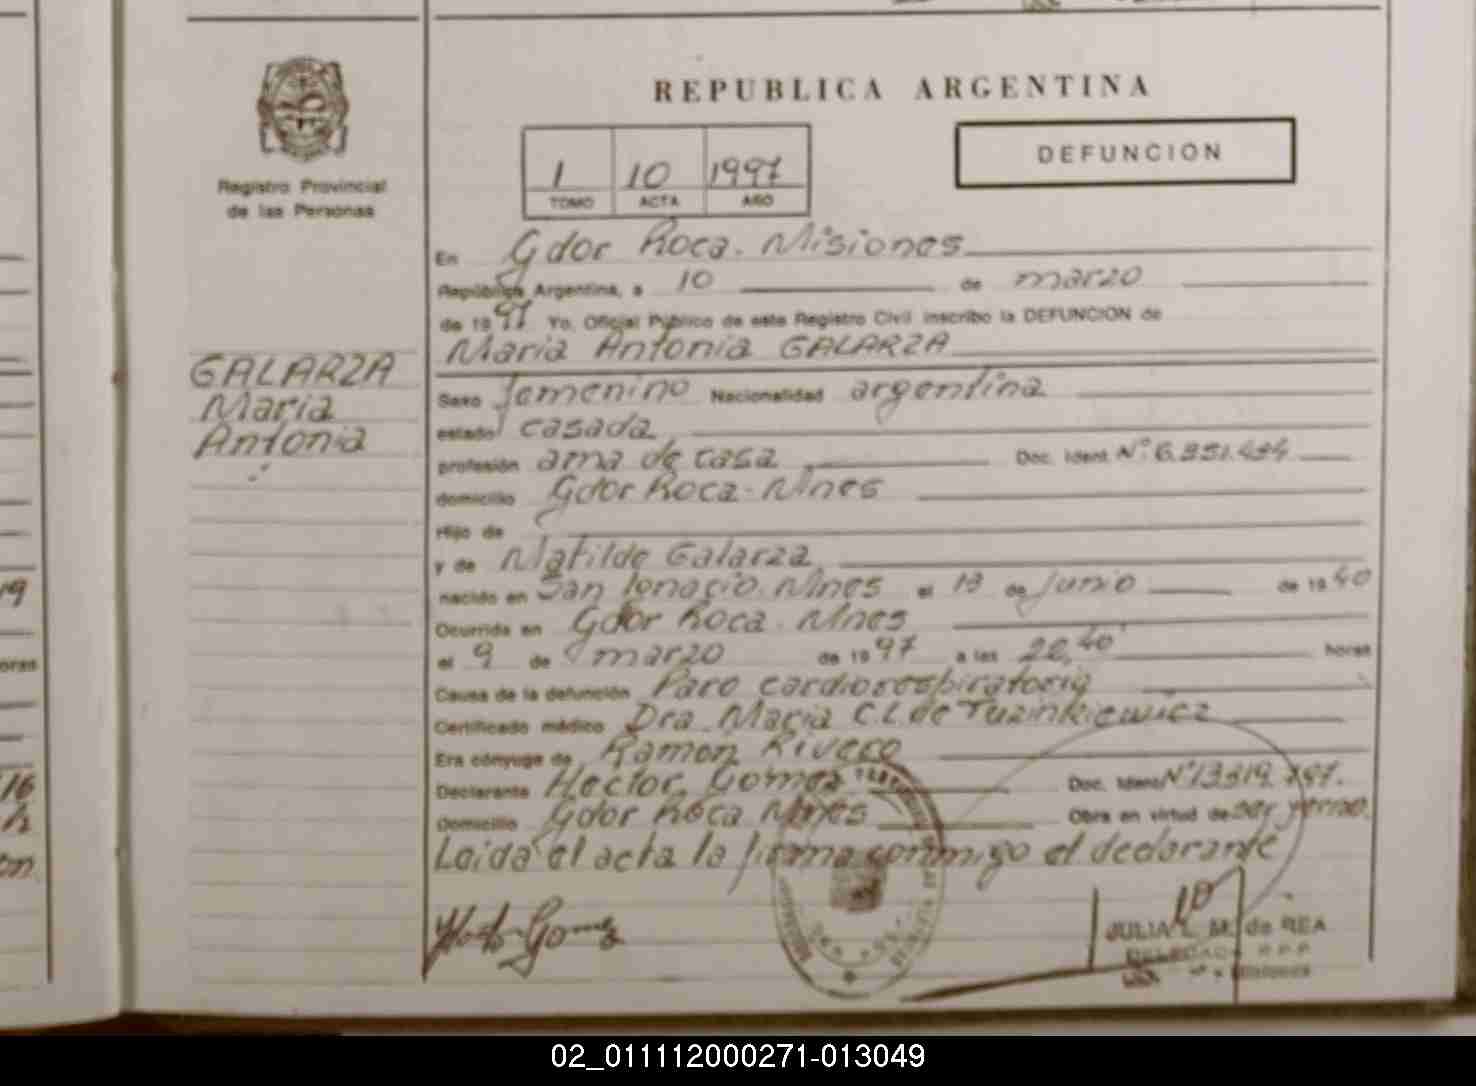 REPUBLICA ARGENTINA
Registro Provincial
de las Personas
1 10 1997
TOMO ACTA AÑO
DEFUNCION
En Gdor Roca. Misiones
República Argentina, a 10 de marzo
de 1997 Yo, Oficial Público de este Registro Civil inscribo la DEFUNCION de
Maria Antonia GALARZA
GALARZA
Maria
Antonia
Sexo femenino Nacionalidad argentina
estado casada
profesión ama de casa Doc. Ident. Nº
domicilio Gdor Roca - Mnes
Hijo de
y de Matilde Galarza
nacido en San Ignacio. Mnes el de junio de 1940
Ocurrida en Gdor Roca. Mnes
el 9 de marzo de 1997 a las horas
Causa de la defunción Paro cardiorespiratorio
Certificado médico Dra. Maria C.L. de Tuzinkiewicz
Era cónyuge de Ramon Rivero
Declarante Hector Gomez Doc. Ident. Nº
Domicilio Gdor Roca Mnes Obra en virtud de ser yerno.
Leida el acta la firma conmigo el declarante
Hector Gomez
JULIA L. M. de REA
R.P.P.
Misiones
19
oras
16
02_011112000271-013049